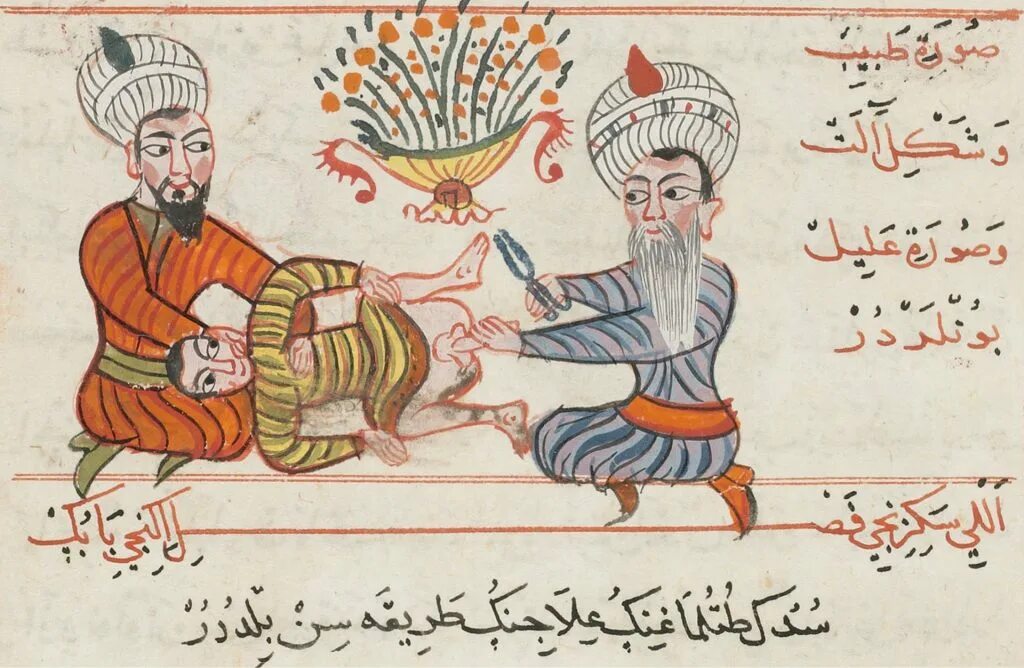 صُورَةِ طَبِيبْ
وَشَكْلِ آلَتْ
وَصُورَةِ عَلِيلْ
بُونْلَرْدُرْ
اَللِّي سَكِزِنْجِي فَصْلِ اِكِنْجِي بَابُكْ
سُدُكْ طُتُلْمَاغِنِكْ عِلَاجِنِكْ طَرِيقَه سِنْ بِلْدُرُرْ